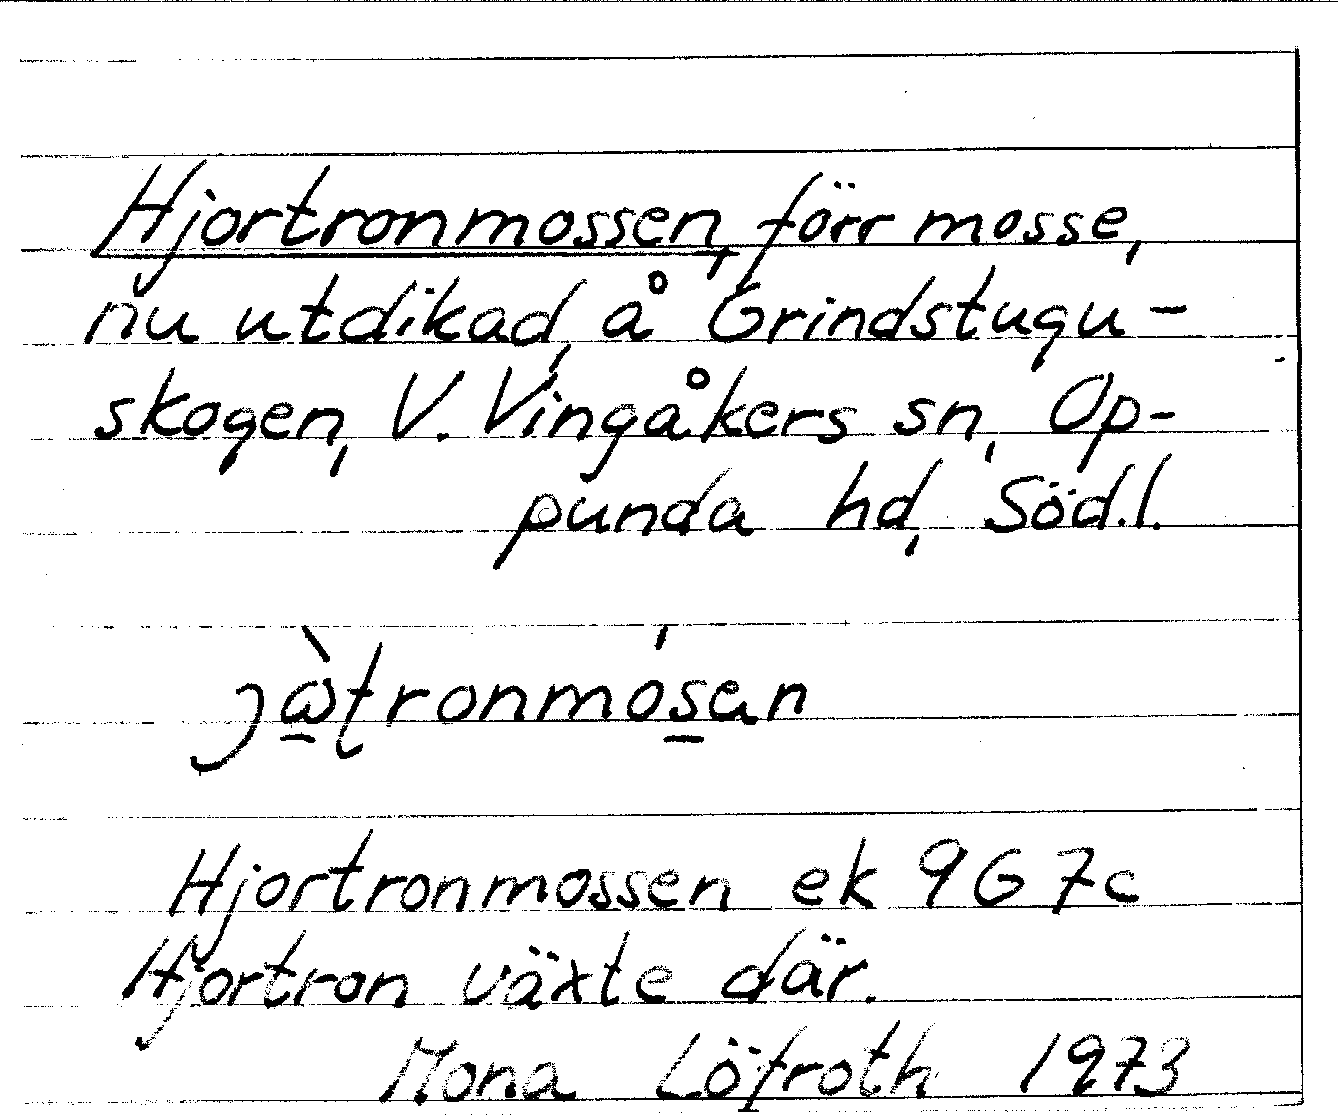 Hjortronmossen, förr mosse,
nu utdikad, å Grindstugu-
skogen, V. Vingåkers sn, Op-
punda hd, Söd.l.
jὰtronmósen
Hjortronmossen ek 9G7c
Hjortron växte där.
Mona Löfroth 1973